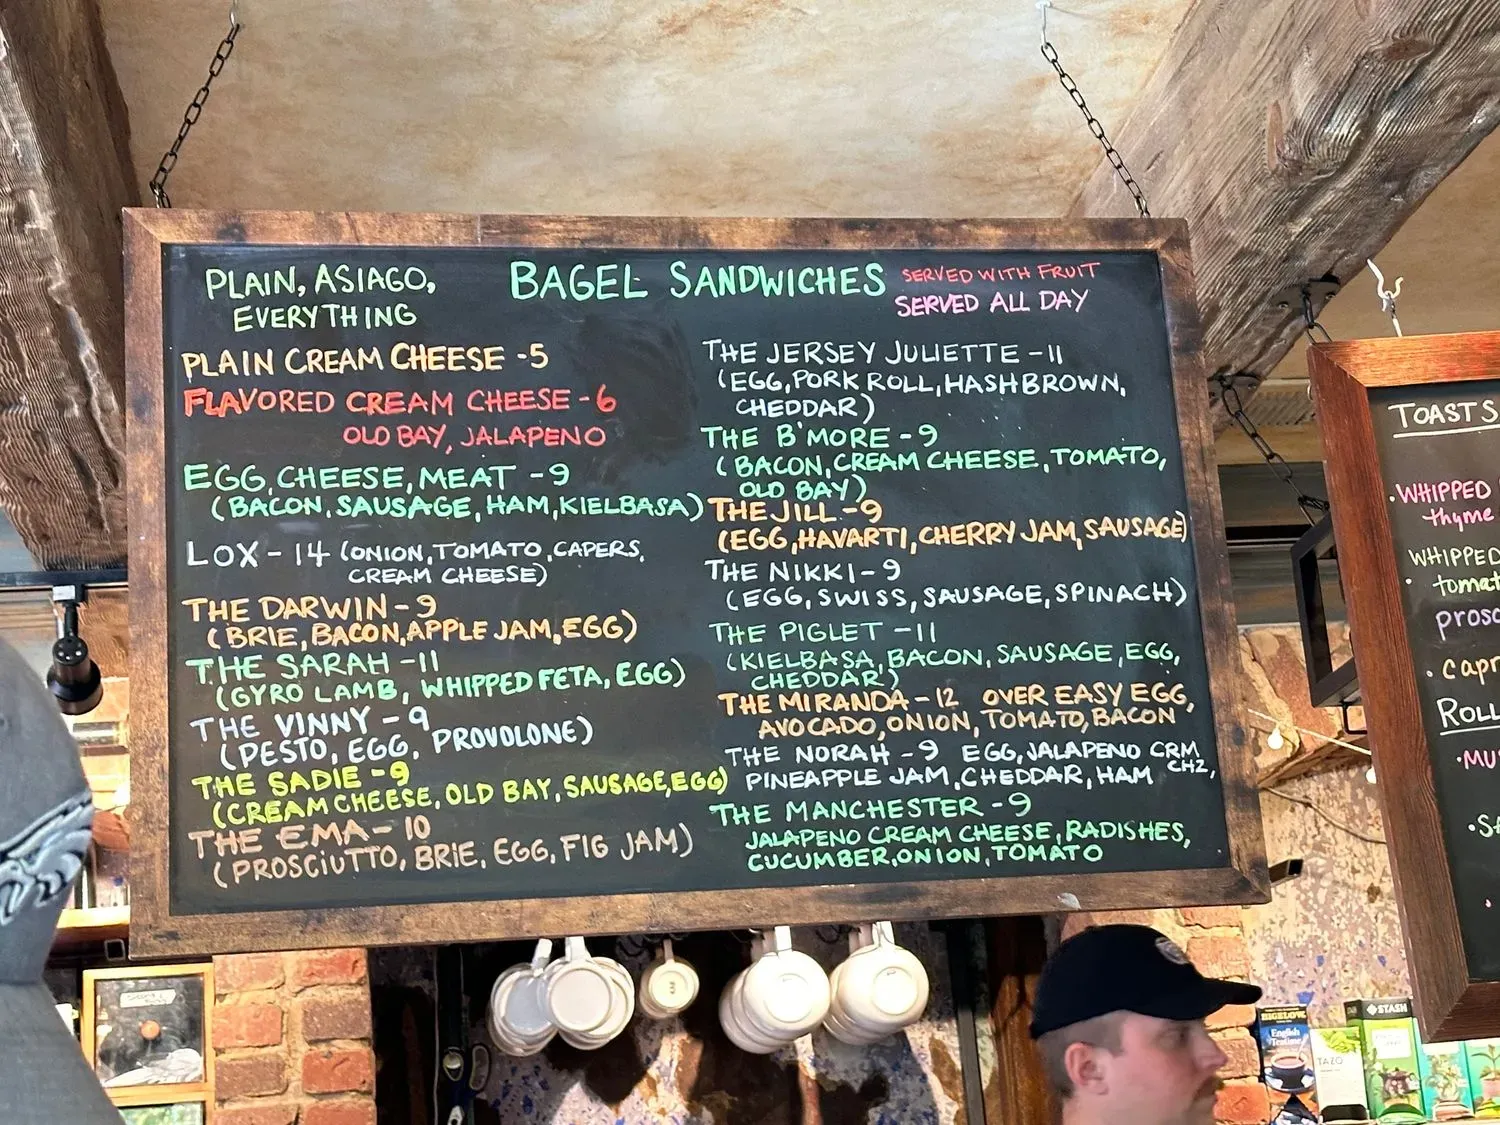 PLAIN, ASIAGO,
EVERYTHING
BAGEL SANDWICHES
SERVED WITH FRUIT
SERVED ALL DAY
PLAIN CREAM CHEESE - 5
FLAVORED CREAM CHEESE - 6
OLD BAY, JALAPENO
EGG, CHEESE, MEAT - 9
(BACON, SAUSAGE, HAM, KIELBASA)
LOX - 14 (ONION, TOMATO, CAPERS,
CREAM CHEESE)
THE DARWIN - 9
(BRIE, BACON, APPLE JAM, EGG)
THE SARAH - 11
(GYRO LAMB, WHIPPED FETA, EGG)
THE VINNY - 9
(PESTO, EGG, PROVOLONE)
THE SADIE - 9
(CREAM CHEESE, OLD BAY, SAUSAGE, EGG)
THE EMA - 10
(PROSCIUTTO, BRIE, EGG, FIG JAM)
THE JERSEY JULIETTE - 11
(EGG, PORK ROLL, HASHBROWN,
CHEDDAR)
THE B'MORE - 9
(BACON, CREAM CHEESE, TOMATO,
OLD BAY)
THE JILL - 9
(EGG, HAVARTI, CHERRY JAM, SAUSAGE)
THE NIKKI - 9
(EGG, SWISS, SAUSAGE, SPINACH)
THE PIGLET - 11
(KIELBASA, BACON, SAUSAGE, EGG,
CHEDDAR)
THE MIRANDA - 12 OVER EASY EGG,
AVOCADO, ONION, TOMATO, BACON
THE NORAH - 9 EGG, JALAPENO CRM
CHZ,
PINEAPPLE JAM, CHEDDAR, HAM
THE MANCHESTER - 9
JALAPENO CREAM CHEESE, RADISHES,
CUCUMBER, ONION, TOMATO
TOASTS
·WHIPPED
thyme
WHIPPED
BIGELOW
English
Teatime
TAZO
STASH
3